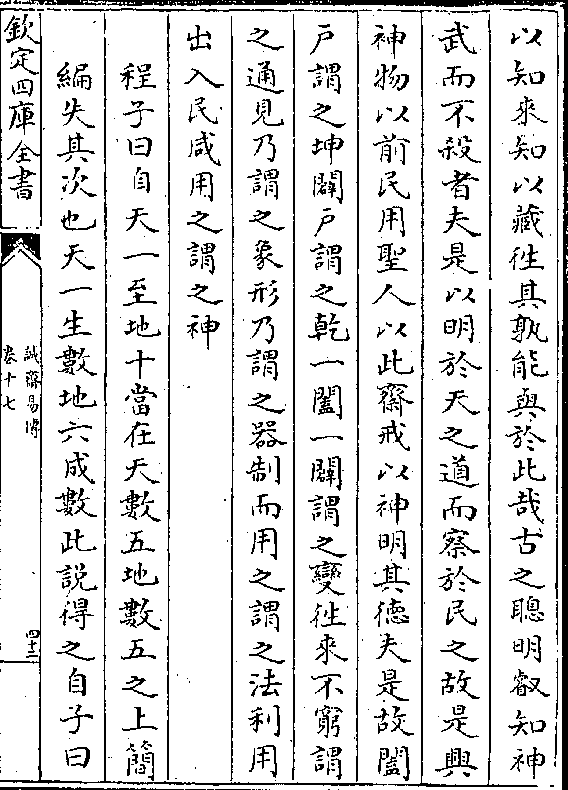 以知來知以藏徃其孰能與於此哉古之聰明叡知神
武而不殺者夫是以明於天之道而察於民之故是興
神物以前民用聖人以此齋戒以神明其徳夫是故闔
戸謂之坤闢戸謂之乾一闔一闢謂之變徃來不窮謂
之通見乃謂之象形乃謂之器制而用之謂之法利用
出入民咸用之謂之神
程子曰自天一至地十當在天數五地數五之上簡
編失其次也天一生數地六成數此説得之自子曰
欽定四庫全書
誠齋易傳
卷十七
四十二